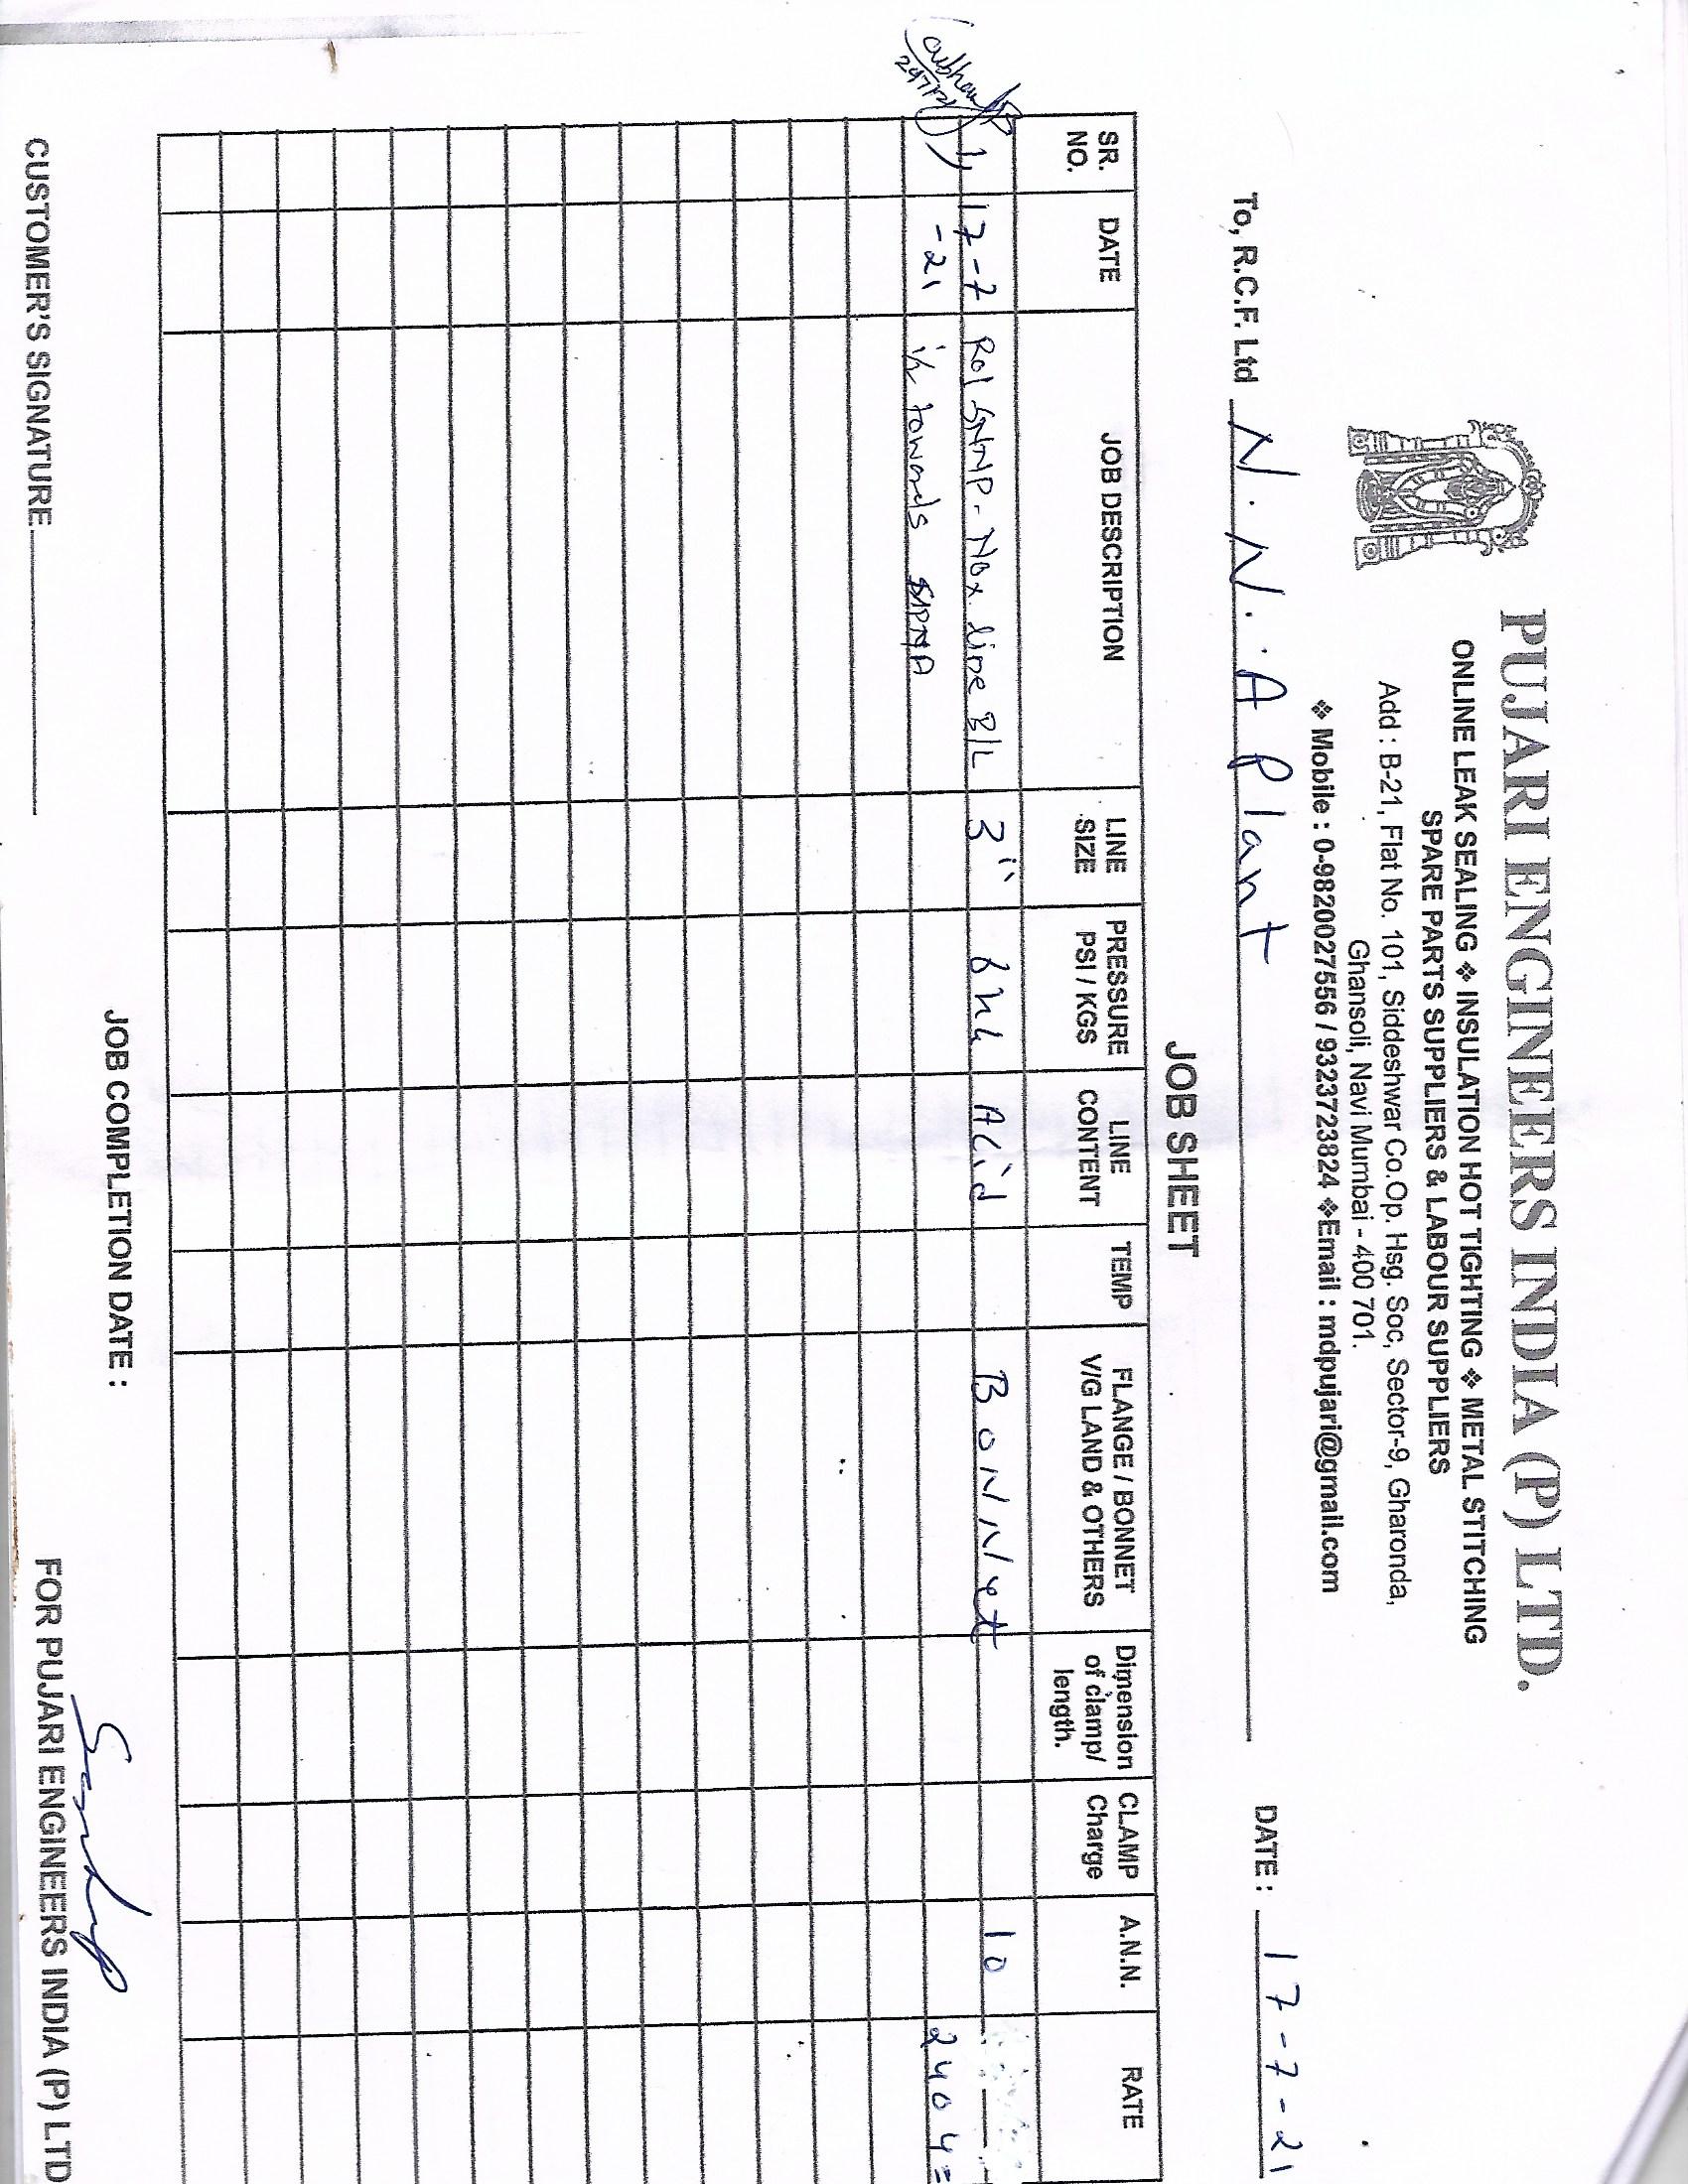 PUJARI ENGINEERS INDIA (P) LTD.
ONLINE LEAK SEALING ❖ INSULATION HOT TIGHTING ❖ METAL STITCHING
SPARE PARTS SUPPLIERS & LABOUR SUPPLIERS
Add : B-21, Flat No. 101, Siddeshwar Co.Op. Hsg. Soc, Sector-9, Gharonda,
Ghansoli, Navi Mumbai - 400 701.
❖ Mobile : 0-9820027556 / 9323723824 ❖Email : mdpujari@gmail.com
To, R.C.F. Ltd N.N.A Plant
DATE : 17-7-21
JOB SHEET
SR. NO. DATE JOB DESCRIPTION LINE SIZE PRESSURE PSI / KGS LINE CONTENT TEMP FLANGE / BONNET V/G LAND & OTHERS Dimension of clamp/ length. CLAMP Charge A.N.N. RATE
1, 17-7 NOx line B/L 3" Acid BONNet 10
-21 i/c towards 2404=
JOB COMPLETION DATE :
CUSTOMER'S SIGNATURE
FOR PUJARI ENGINEERS INDIA (P) LTD